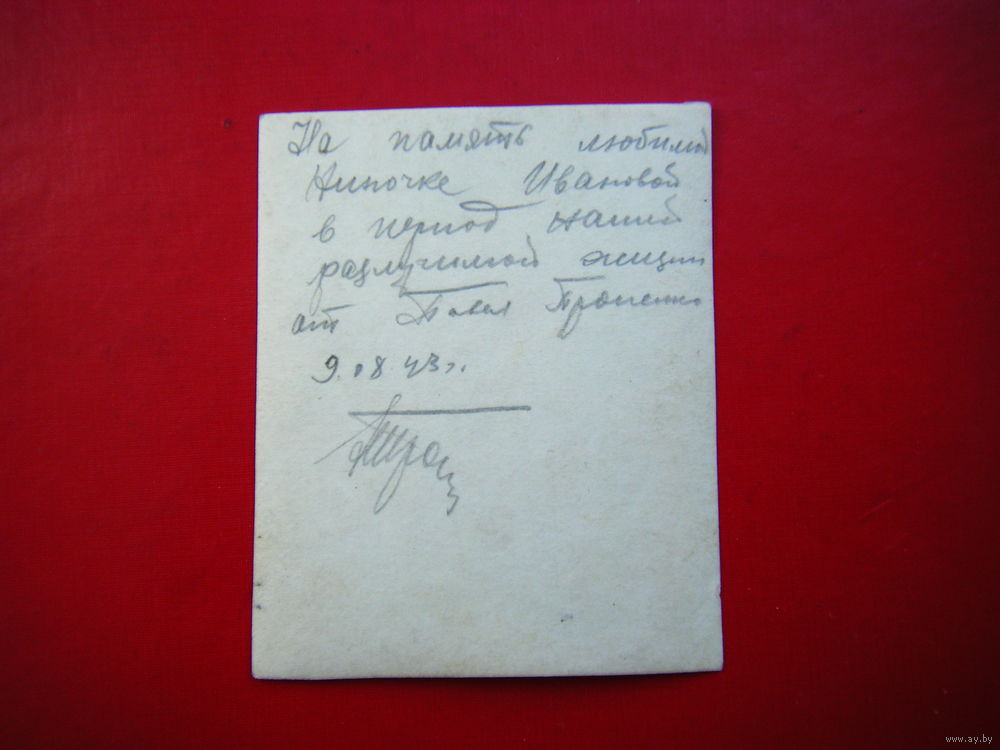 На память любимой
Ниночке Ивановой
в период нашей
разлучимой жизни
от Павел
9.08.43 г.
www.ay.by